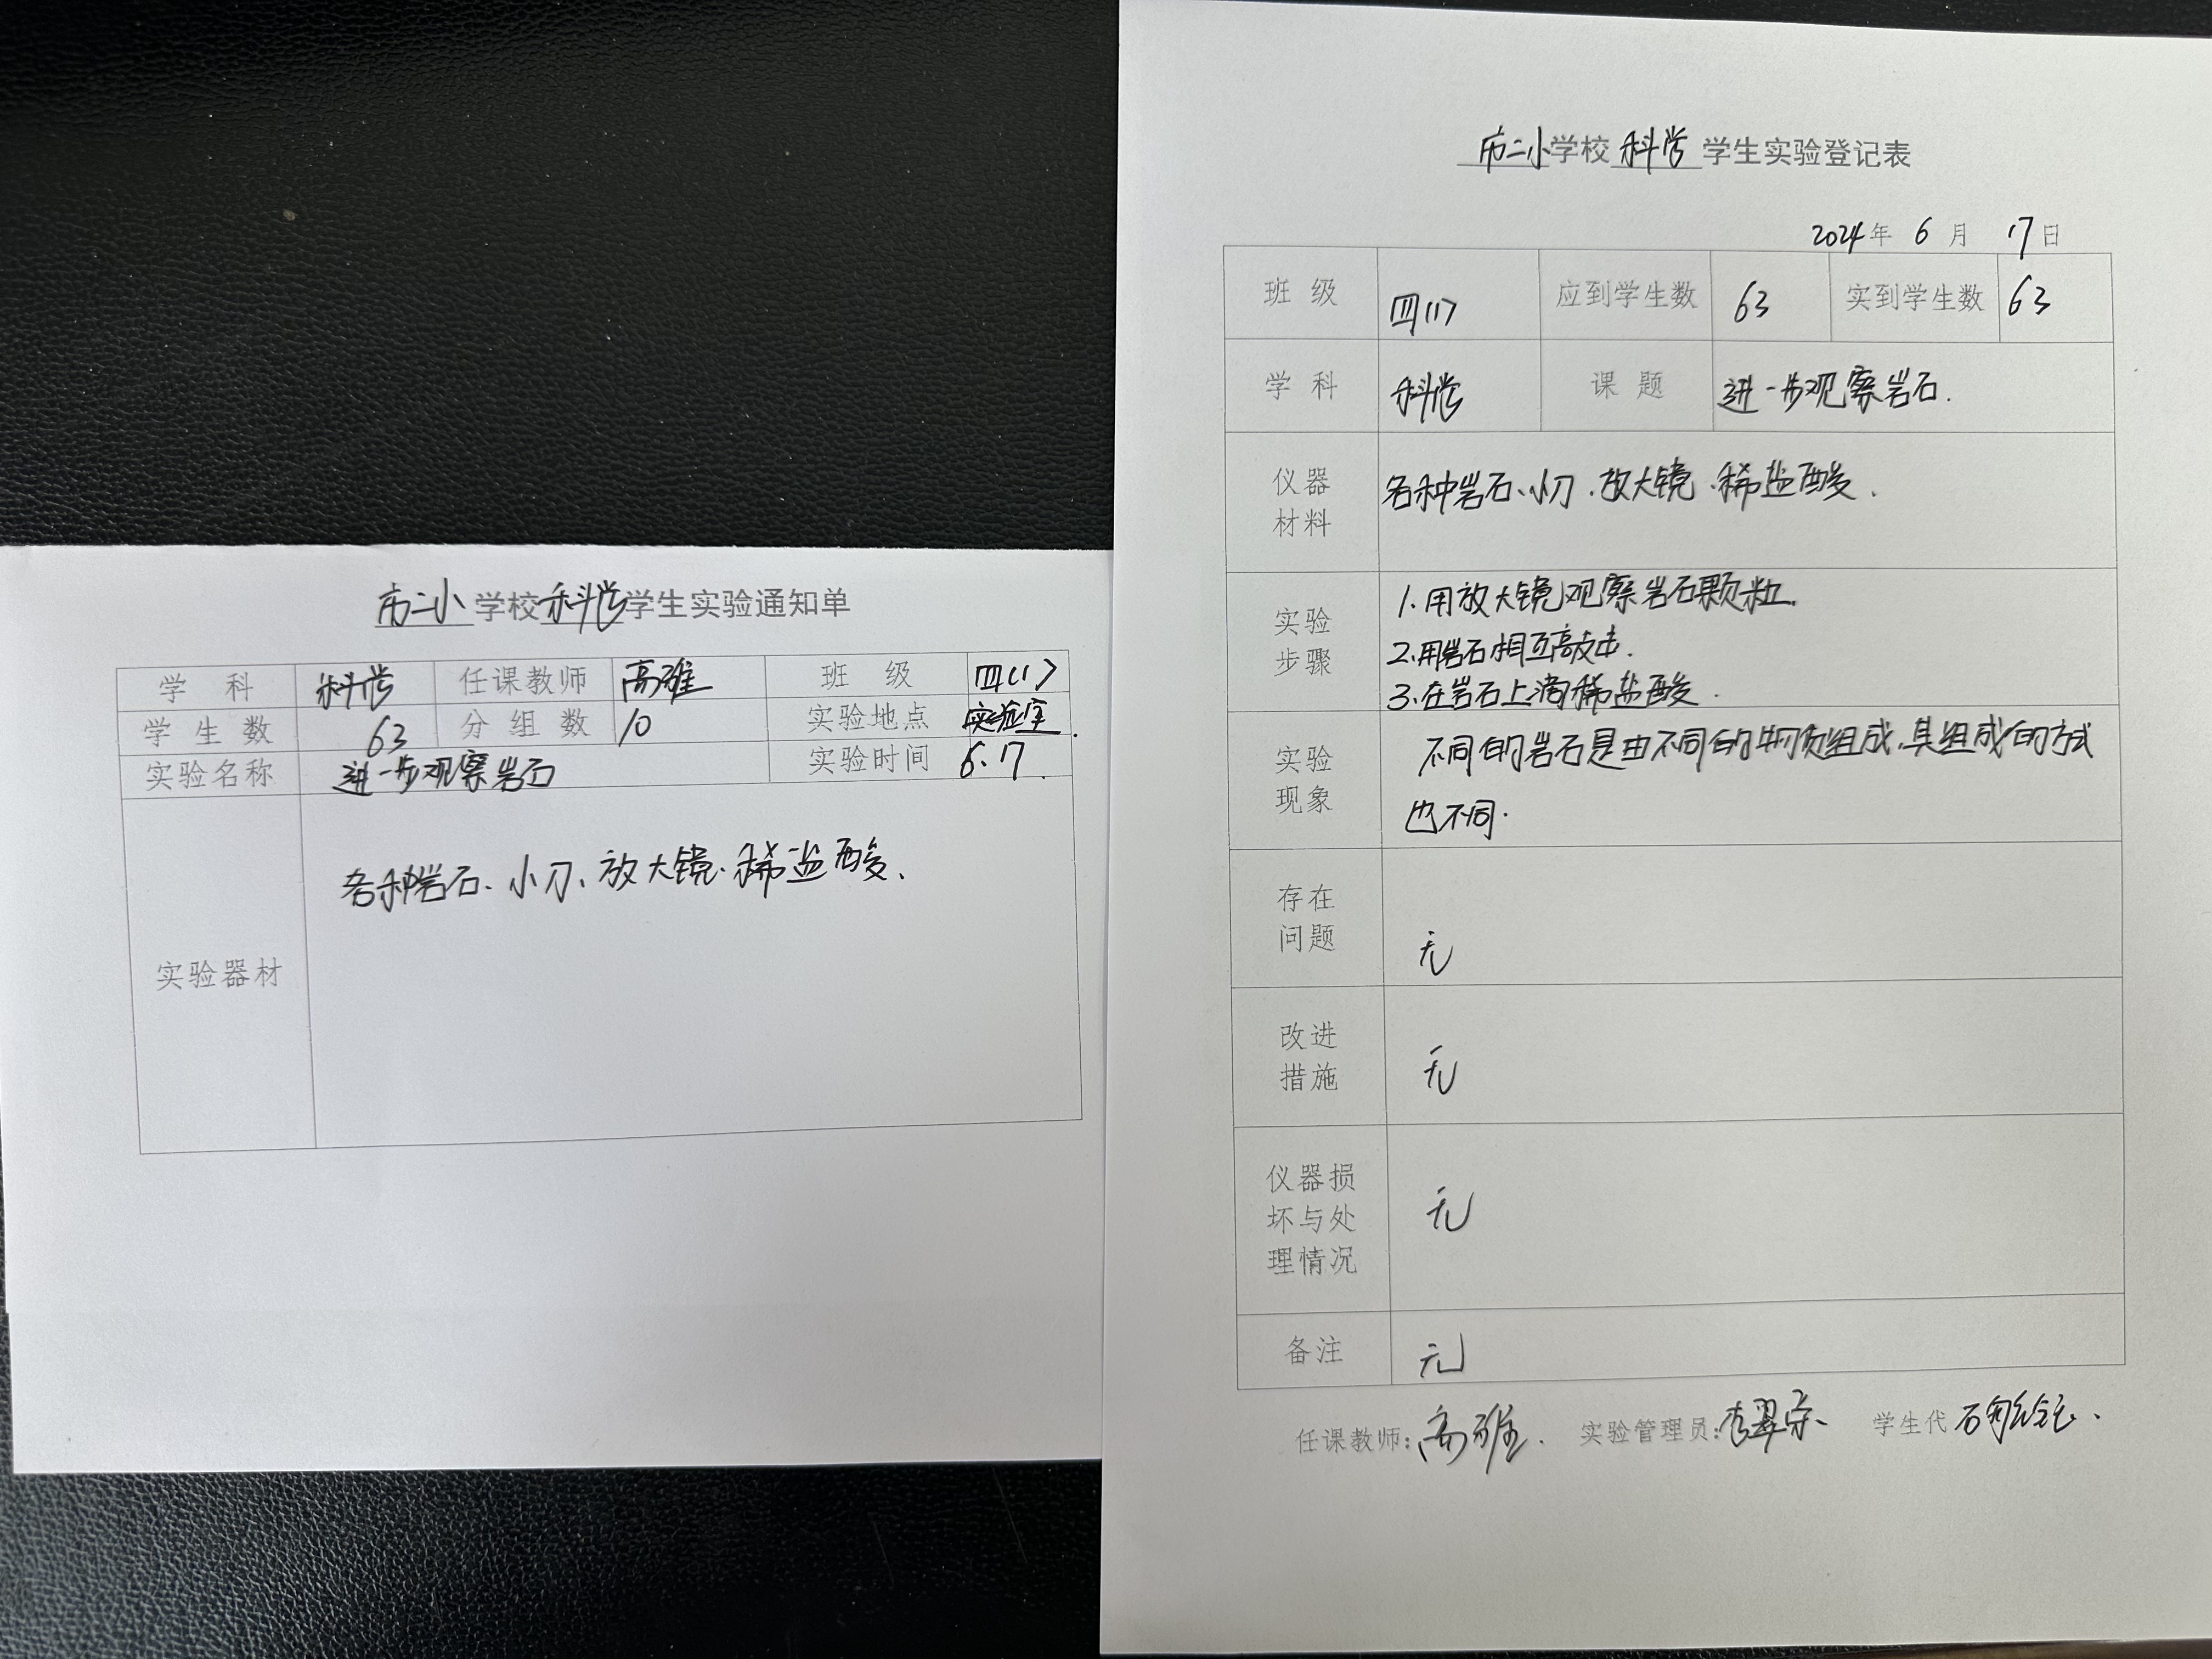 市二小学校科学学生实验通知单
学 科 科学 任课教师 高雅 班 级 四(1)
学 生 数 63 分 组 数 10 实验地点 实验室.
实验名称 进一步观察岩石 实验时间 6.17.
实验器材 各种岩石、小刀、放大镜、稀盐酸.
市二小学校科学学生实验登记表
2024年 6 月 17日
班 级 四(1) 应到学生数 63 实到学生数 63
学 科 科学 课 题 进一步观察岩石.
仪器
材料
各种岩石、小刀.放大镜.稀盐酸.
实验
步骤
1.用放大镜观察岩石颗粒.
2.用岩石相互敲击.
3.在岩石上滴稀盐酸.
实验
现象
不同的岩石是由不同的物质组成,其组成的方式
也不同.
存在
问题
无
改进
措施
无
仪器损
坏与处
理情况
无
备注 无
任课教师:高雅. 实验管理员: 学生代